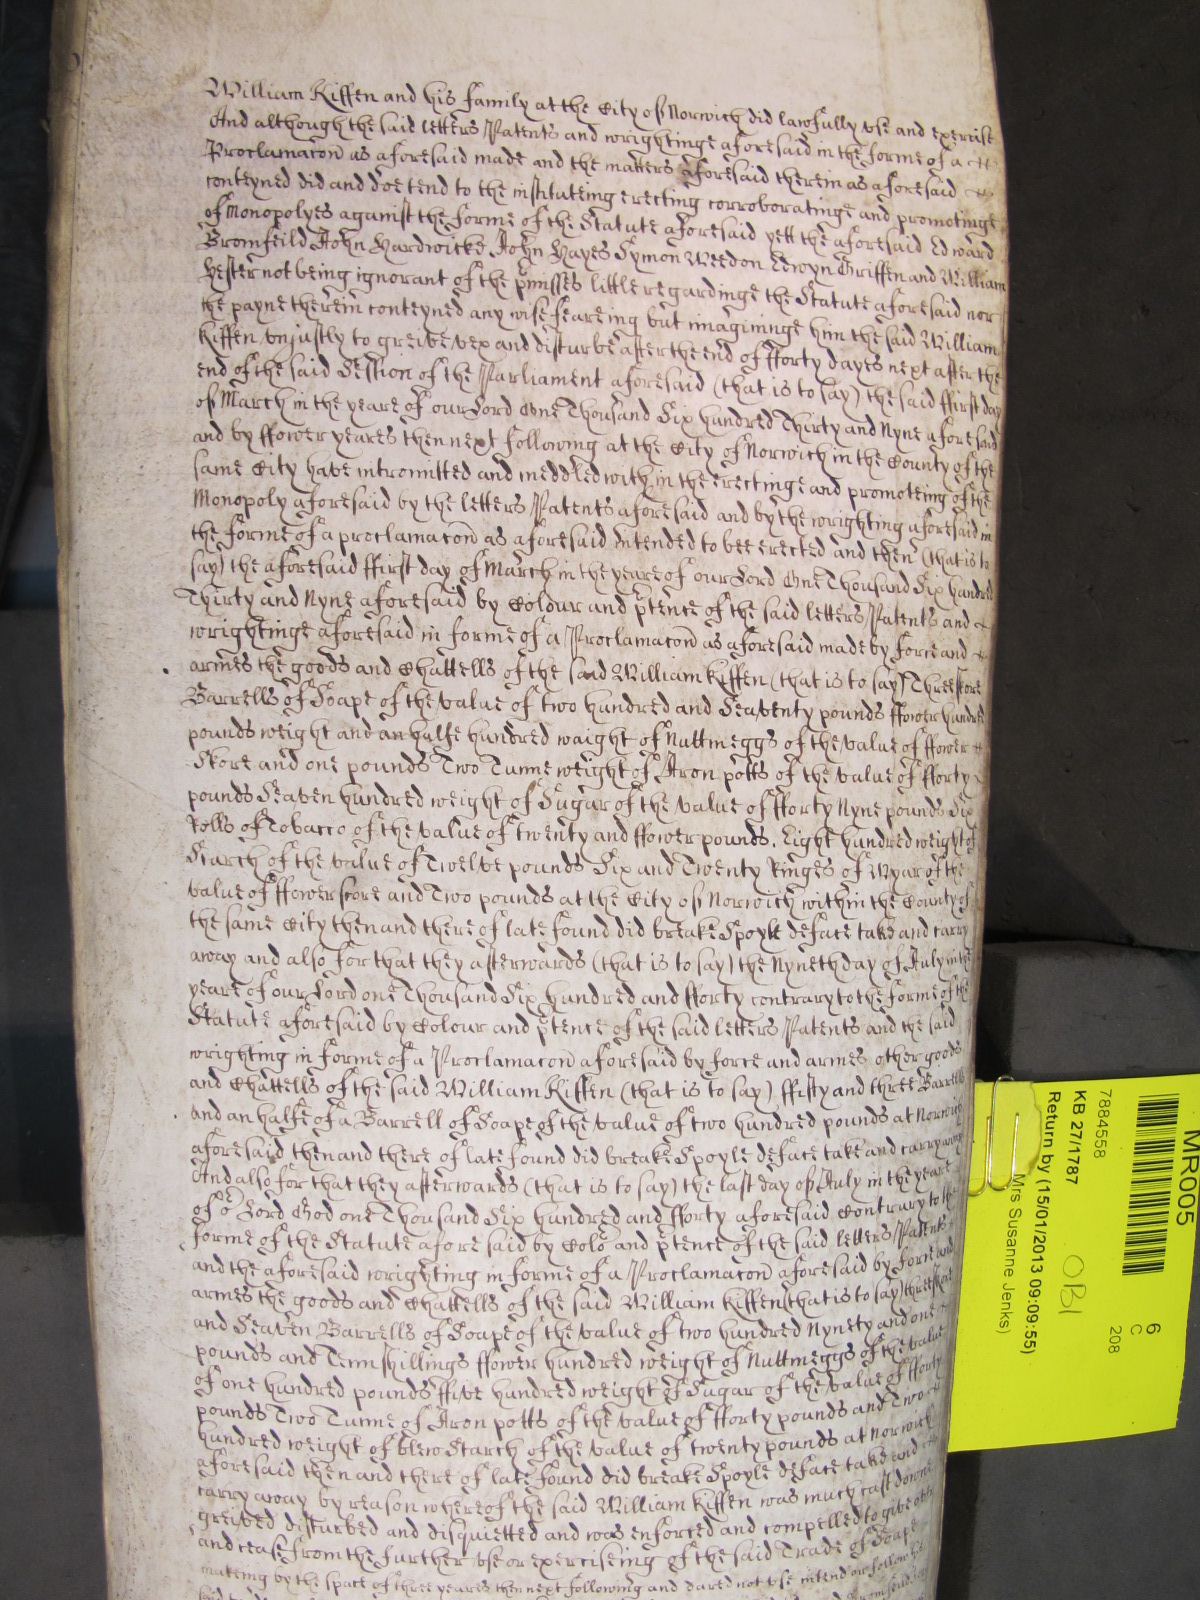 William Kiffen and his family at the City of Norwich did lawfully vse and exercise
And although the said letters Patents and wrightinge aforesaid in the forme of a
Proclamacon as aforesaid made and the matters aforesaid therein as aforesaid
conteyned did and doe tend to the instituteing erecting corroboratinge and promotinge
of Monopolyes against the forme of the Statute aforesaid yett the aforesaid Edward
Bromfeild John Hardwicke John Hayes Symon Weedon Edwyn Griffen and William
Hester not being ignorant of the pmisses little regardinge the Statute aforesaid nor
the payne therein conteyned any wise feareing but imagininge him the said William
Kiffen vniustly to greive vex and disturbe after the end of fforty dayes next after the
end of the said Session of the Parliament aforesaid (that is to say) the said ffirst day
of March in the yeare of our Lord One Thousand Six hundred Thirty and Nyne aforesaid
and by ffower yeares then next following at the City of Norwich in the County of the
same City have intromitted and meddled with in the erectinge and promoteing of the
Monopoly aforesaid by the letters Patents aforesaid and by the wrighting aforesaid in
the forme of a proclamacon as aforesaid intended to bee erected and then (that is to
say) the aforesaid ffirst day of March in the yeare of our Lord One Thousand Six hundred
Thirty and Nyne aforesaid by Colour and ptence of the said letters Patents and
wrightinge aforesaid in forme of a Proclamacon as aforesaid made by force and
armes the goods and Chattells of the said William Kiffen (that is to say) Threeskore
Barrells of Soape of the value of two hundred and Seaventy pounds ffower hundred
pounds weight and an halfe hundred waight of Nuttmeggs of the value of ffower
Skore and one pounds Two Tunne weight of Iron potts of the value of fforty
pounds Seaven hundred weight of Sugar of the value of fforty Nyne pounds Six
Rolls of Tobacco of the value of twenty and ffower pounds. Eight hundred weight of
Starch of the value of Twelve pounds Six and Twenty Ringes of Wyar of the
value of ffower score and Two pounds at the City of Norwich within the County of
the same City then and there of late found did breake Spoyle deface take and carry
away and also for that they afterwards (that is to say) the Nyneth day of July in the
yeare of our Lord one Thousand Six hundred and fforty contrary to the forme of the
Statute aforesaid by Colour and ptence of the said letters Patents and the said
wrighting in forme of a Proclamacon aforesaid by force and armes other goods
and Chattells of the said William Kiffen (that is to say) ffifty and three Barrells
and an halfe of a Barrell of Soape of the value of two hundred pounds at Norwich
aforesaid then and there of late found did breake Spoyle deface take and carry away
And also for that they afterwards (that is to say) the last day of July in the yeare
of or Lord God one Thousand Six hundred and fforty aforesaid Contrary to the
forme of the Statute afore said by Colo and ptence of the said letters Patents
and the aforesaid wrighting in forme of a Proclamacon aforesaid by force and
armes the goods and Chattells of the said William Kiffen (that is to say) threeskore
and Seaven Barrells of Soape of the value of two hundred Nynety and one
pounds and Tenn shillings ffower hundred weight of Nuttmeggs of the value
of one hundred pounds ffive hundred weight of Sugar of the value of fforty
pounds Two Tunne of Iron potts of the value of fforty pounds and Two
hundred weight of blew Starch of the value of twenty pounds at Norwich
aforesaid then and there of late found did breake Spoyle deface take and
carry away by reason whereof the said William Kiffen was much cast downe
greived disturbed and disquietted and was enforced and compelled to give over
and cease from the further vse or exerciseing of the said Trade of Soape
makeing by the space of three yeares then next following and dared not vse intend or follow his
MR005
6
C
208
7884558
KB 27/1787
OBI
Return by (15/01/2013 09:09:55)
Mrs Susanne Jenks)